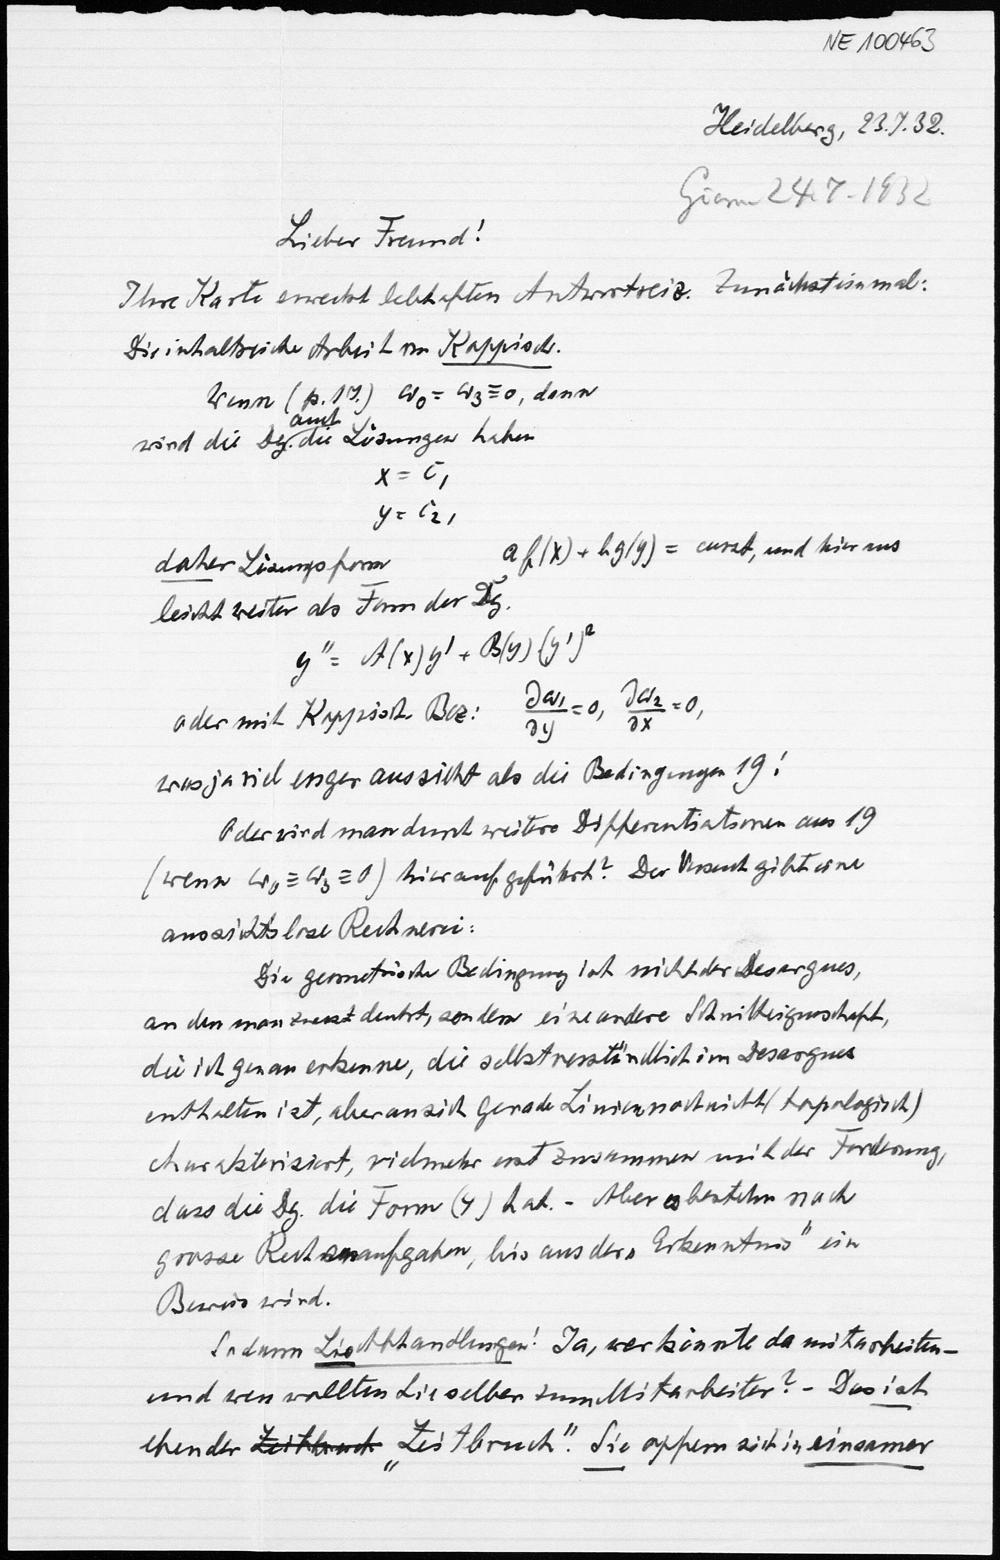 NE 100463
Heidelberg, 23.7.32.
24.7-1932
Lieber Freund!
Ihre Karte erweckt lebhaften Antwortreiz. Zunächsteinmal:
Die inhaltreiche Arbeit von Kappisch.
Wenn (p. 17.) ω₀ = ω₃ ≡ 0, dann
auch
wird die Dg. die Lösungen haben
x = c₁
y = c₂,
daher Lösungsform a f(x) + b g(y) = const, und hieraus
leicht weiter als Form der Dg.
y'' = A(x) y' + B(y) (y')²
oder mit Kappisch Bez: ∂ω₁/∂y = 0, ∂ω₂/∂x = 0,
was ja viel enger aussieht als die Bedingungen 19!
Oder wird man durch weitere Differentiationen aus 19
(wenn ω₀ ≡ ω₃ ≡ 0) hierauf geführt? Der Versuch gibt eine
aussichtslose Rechnerei:
Die geometrische Bedingung ist nicht der Desargues,
an den man zuerst denkt, sondern eine andere Schnitteigenschaft,
die ich genau erkenne, die selbstverständlich im Desargues
enthalten ist, aber an sich Gerade Linien noch nicht (topologisch)
charakterisiert, vielmehr erst zusammen mit der Forderung,
dass die Dg. die Form (4) hat. - Aber es bestehn noch
grosse Rechenaufgaben, bis aus der „Erkenntnis" ein
Beweis wird.
Sodann Lieabhandlungen! Ja, wer könnte da mitarbeiten -
und wen wollten Sie selber zum Mitarbeiter? - Das ist
eben der Zeitbruch „Zeitbruch". Sie opfern sich in einsamer